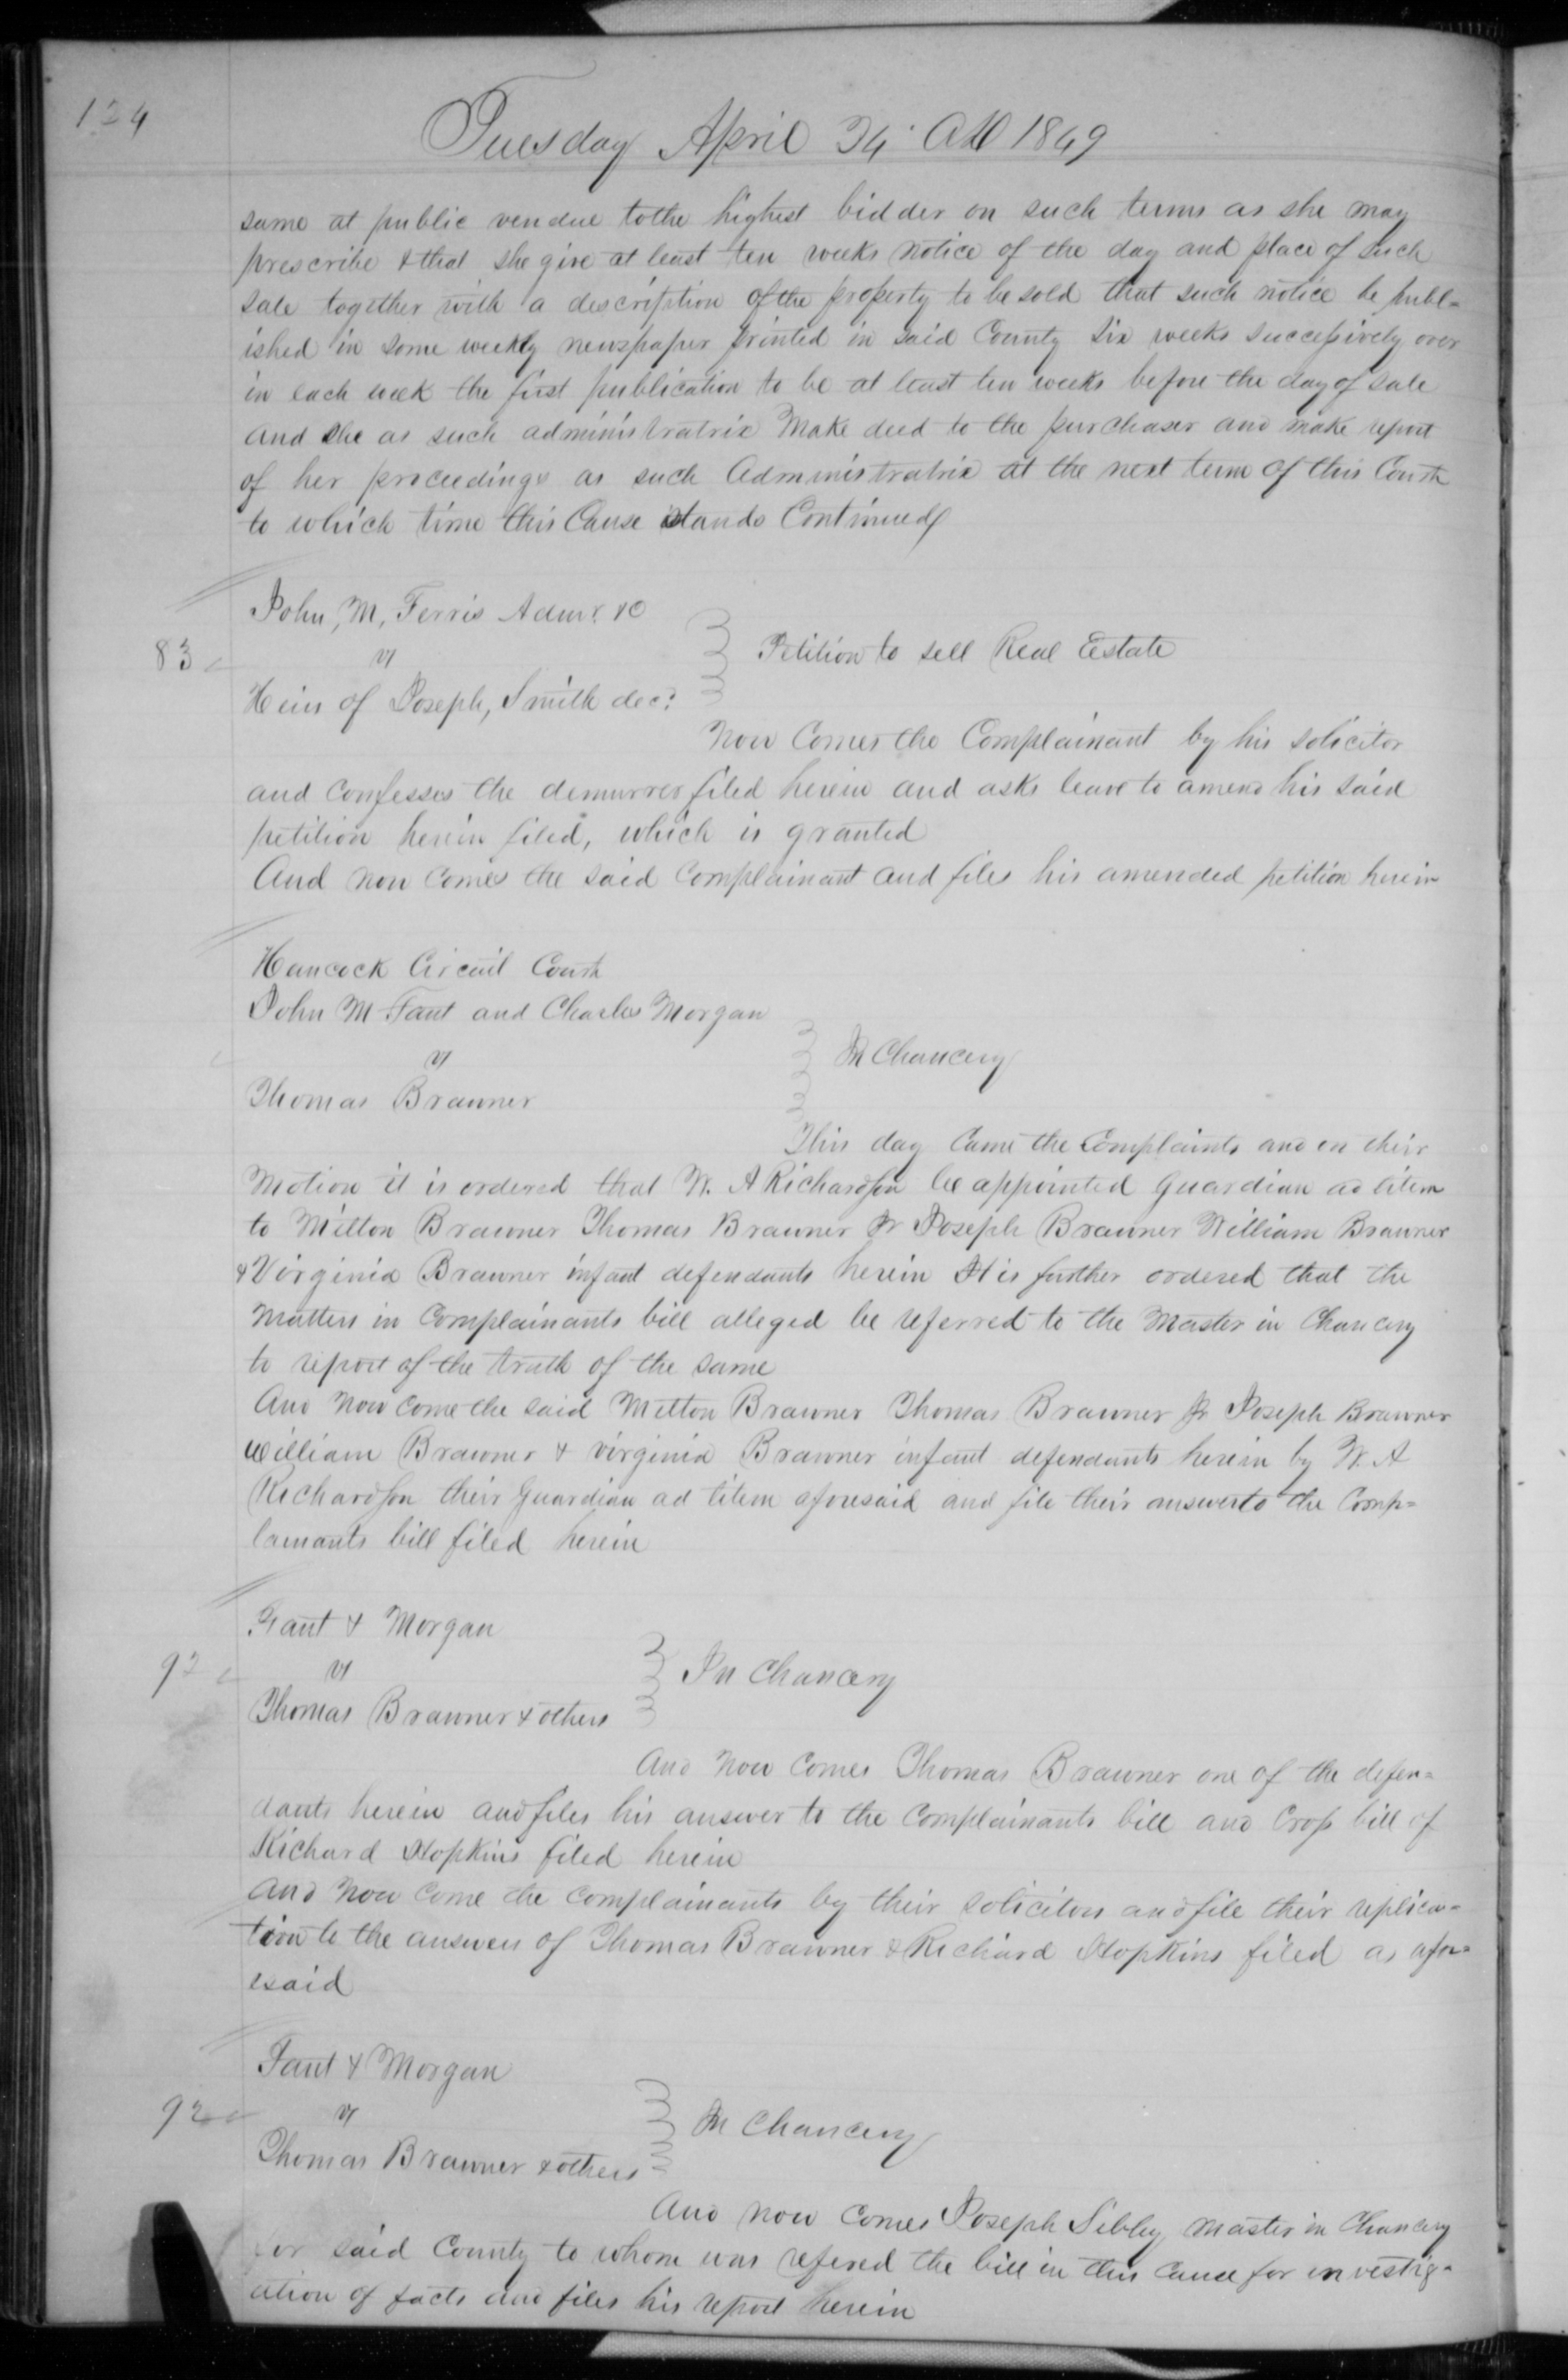 124
Tuesday April 24. AD 1849
same at public vendue to the highest bidder on such terms as she may
prescribe & that she give at least ten weeks notice of the day and place of such
sale together with a description of the property to be sold that such notice be publ=
ished in some weekly newspaper printed in said County six weeks successively once
in each week the first publication to be at least ten weeks before the day of sale
and she as such administratrix Make deed to the purchaser and make report
of her proceedings as such Administratrix at the next term of this Court
to which time this Cause stands Continued
John, M, Ferris Admr. &c
83
vs
Petition to sell Real Estate
Heirs of Joseph, Smith decd.
Now Comes the Complainant by his solicitor
and confesses the demurrer filed herein and asks leave to amend his said
petition herein filed, which is granted
And now comes the said Complainant and files his amended petition herein
Hancock Circuit Court
John M Faut and Charles Morgan
vs
In Chancery
Thomas Brawner
This day Came the Complaints and on their
Motion it is ordered that W. A Richardson be appointed Guardian ad litem
to Milton Brawner Thomas Brawner Jr Joseph Brawner William Brawner
& Virginia Brawner infant defendants herein It is further ordered that the
Matters in Complainants bill alleged be referred to the Master in Chancery
to report of the truth of the same
And now come the said Milton Brawner Thomas Brawner Jr Joseph Brawner
William Brawner & Virginia Brawner infant defendants herein by W. A
Richardson their Guardian ad litem aforesaid and file their answer to the Comp=
lainants bill filed herein
Faut & Morgan
92
vs
In Chancery
Thomas Brawner & others
And now comes Thomas Brawner one of the defen=
dants herein and files his answer to the Complainants bill and Cross bill of
Richard Hopkins filed herein
And now come the complainants by their solicitors and file their replica=
tion to the answers of Thomas Brawner & Richard Hopkins filed as afor=
esaid
Faut & Morgan
92
vs
In Chancery
Thomas Brawner & others
And now comes Joseph Sibley master in Chancery
for said County to whom was refered the bill in this cause for investig=
ation of facts and files his report herein